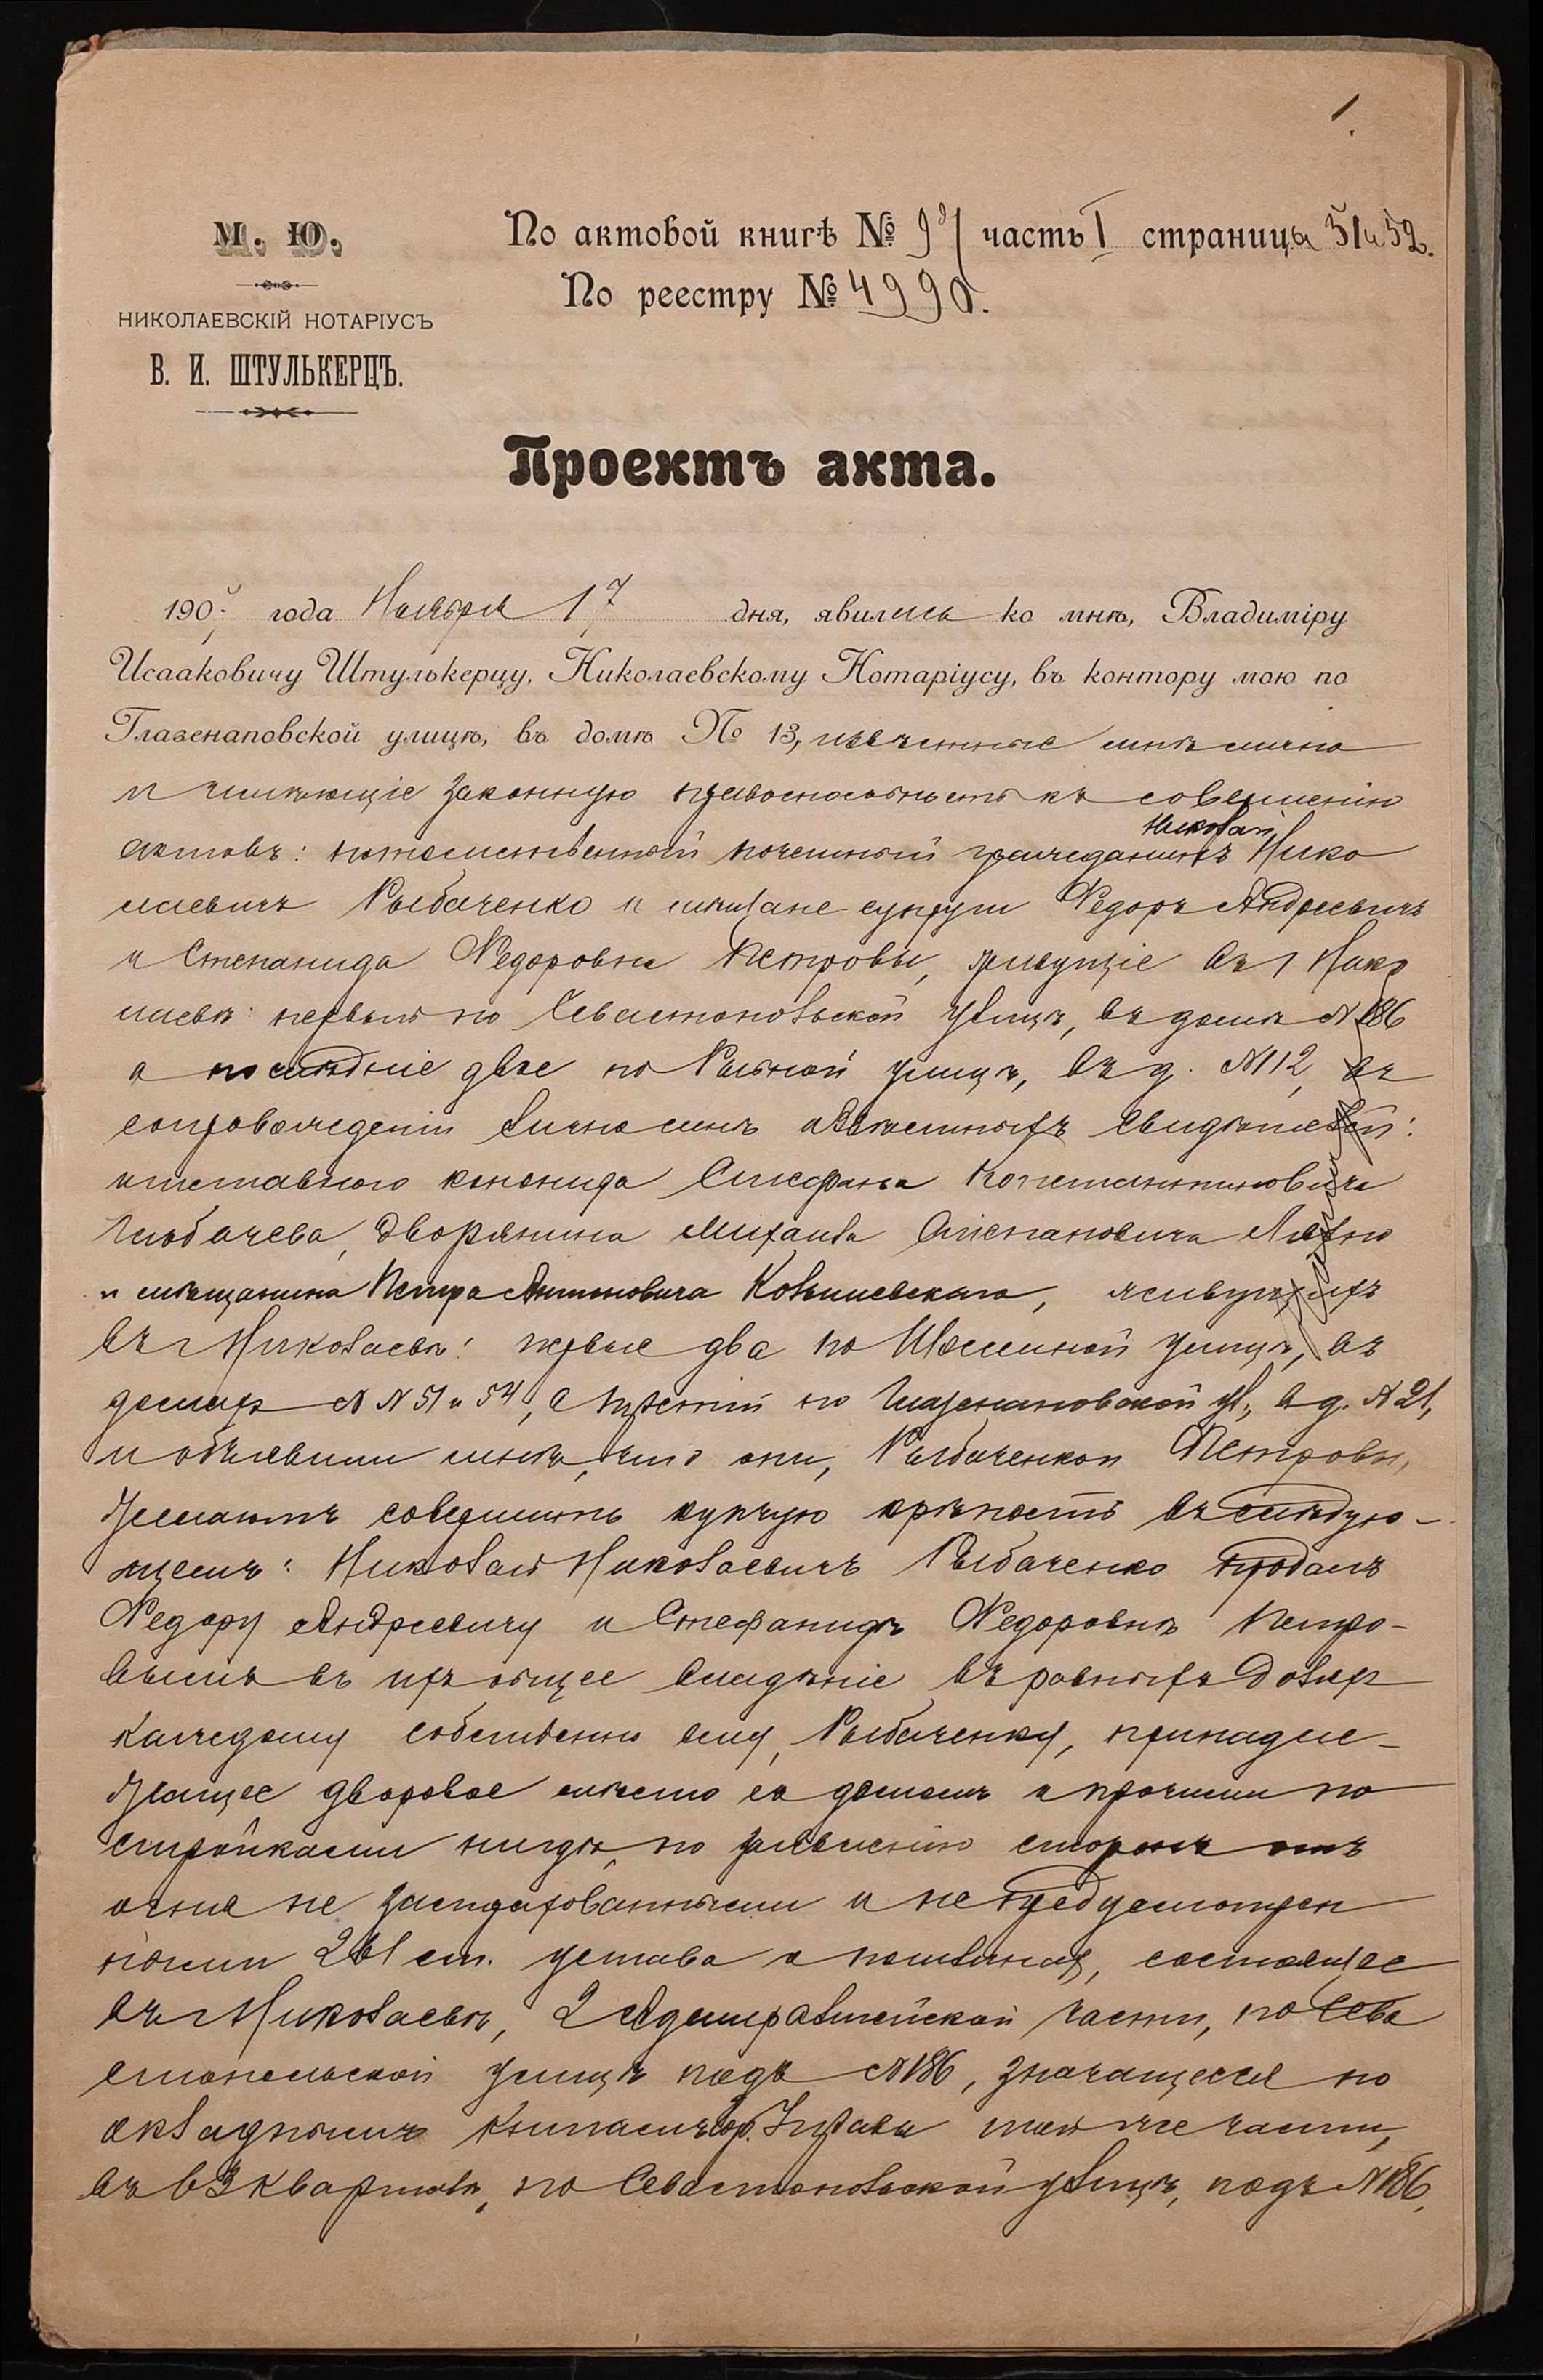 1.
М. Ю.
НИКОЛАЕВСКІЙ НОТАРІУСЪ
В. И. ШТУЛЬКЕРЦЪ.
По актовой книгѣ № часть I страницы 51 и 52.
По реестру № 4990.
Проектъ акта.
190 года Ноября 17 дня, явились ко мнѣ, Владиміру
Исааковичу Штулькерцу, Николаевскому Нотаріусу, въ контору мою по
Глазенаповской улицѣ, въ домѣ № 13, извѣстные мнѣ лично
и имѣющіе законную правоспособность къ совершенію
Николай
актовъ: потомственный почетный гражданинъ Нико
лаевичъ Рыбаченко и мѣщане супруги Федоръ Андреевичъ
и Степанида Федоровна Петровы, живущіе въ г Нико
лаевѣ: первый по Севастопольской улицѣ, въ домѣ № 186
а послѣдніе двое по улицѣ, въ д. № 112, въ
сопровожденіи лично мнѣ извѣстныхъ свидѣтелей:
отставного Стефана Константиновича
дворянина Михаила Степановича
и мѣщанина Петра Антоновича живущихъ
въ г Николаевѣ: первые два по улицѣ, въ
домахъ № № 51 и 54, а третій по Глазенаповской ул., в д. № 21,
и объявили мнѣ, что они, Рыбаченко и Петровы,
желаютъ совершить купчую крѣпость въ слѣдую-
щемъ: Николай Николаевичъ Рыбаченко продалъ
Федору Андреевичу и Стефанидѣ Федоровнѣ Петро-
вымъ въ ихъ общее владѣніе въ равныхъ доляхъ
каждому собственно ему, Рыбаченку, принадле-
жащее дворовое мѣсто съ домомъ и прочими по
стройками нигдѣ, по заявленію сторонъ отъ
огня не застрахованными и непредусмотрен
ными 261 ст. устава о пошлинах, состоящее
въ г Николаевѣ, 2 Адмиралтейской части, по Сева
стопольской улицѣ подъ № 186, значащееся по
окладнымъ книгамъ Гор. Управы той же части,
въ 63 кварталѣ, по Севастопольской улицѣ, подъ № 186,